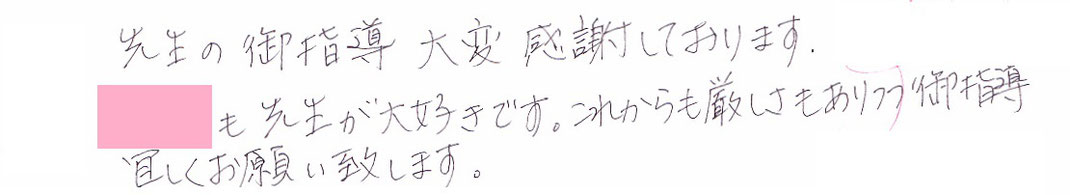 先生の御指導 大変 感謝しております.
も先生が大好きです。これからも厳しさもありつつ御指導
宜しくお願い致します。